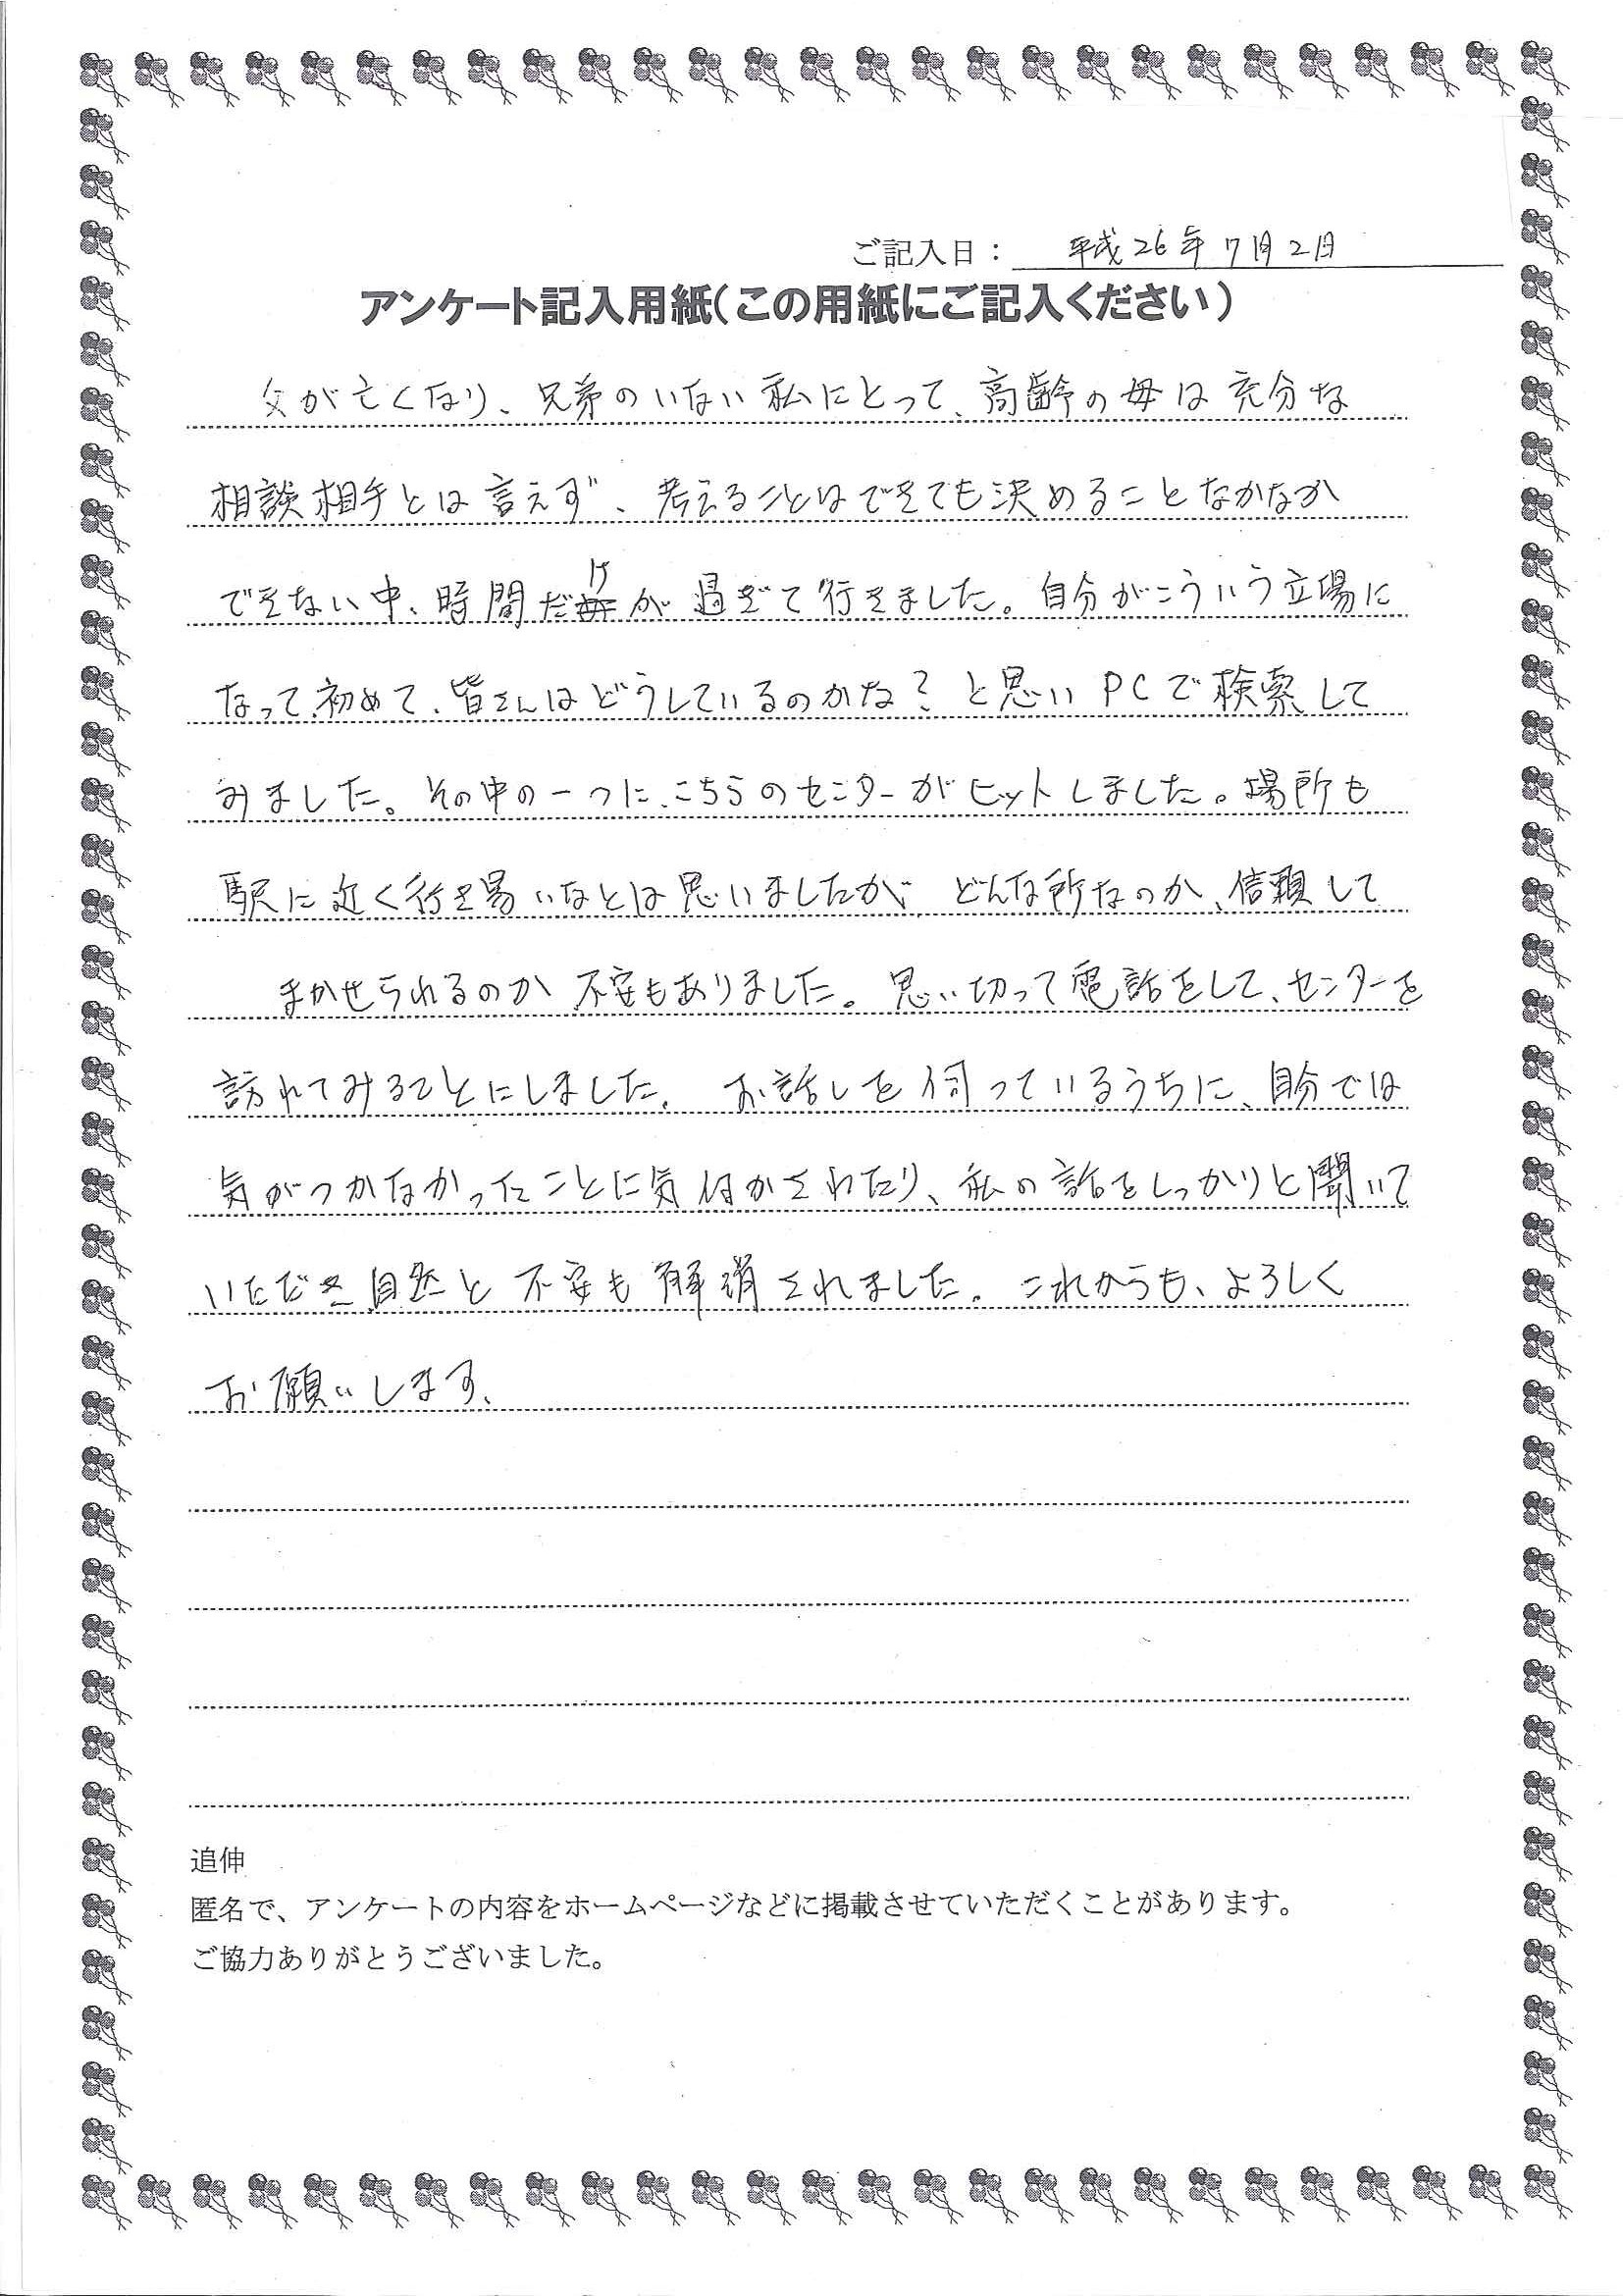 ご記入日： 平成26年7月2日
アンケート記入用紙（この用紙にご記入ください）
父が亡くなり、兄弟のいない私にとって、高齢の母は充分な
相談相手とは言えず、考えることはできても決めることなかなか
できない中、時間だけが過ぎて行きました。自分がこういう立場に
なって、初めて、皆さんはどうしているのかな？と思いPCで検索して
みました。その中の一つに、こちらのセンターがヒットしました。場所も
駅に近く行き易いなとは思いましたが、どんな所なのか、信頼して
まかせられるのか不安もありました。思い切って電話をして、センターを
訪れてみることにしました。お話しを伺っているうちに、自分では
気がつかなかったことに気付かされたり、私の話をしっかりと聞いて
いただき自然と不安も解消されました。これからも、よろしく
お願いします。
追伸
匿名で、アンケートの内容をホームページなどに掲載させていただくことがあります。
ご協力ありがとうございました。